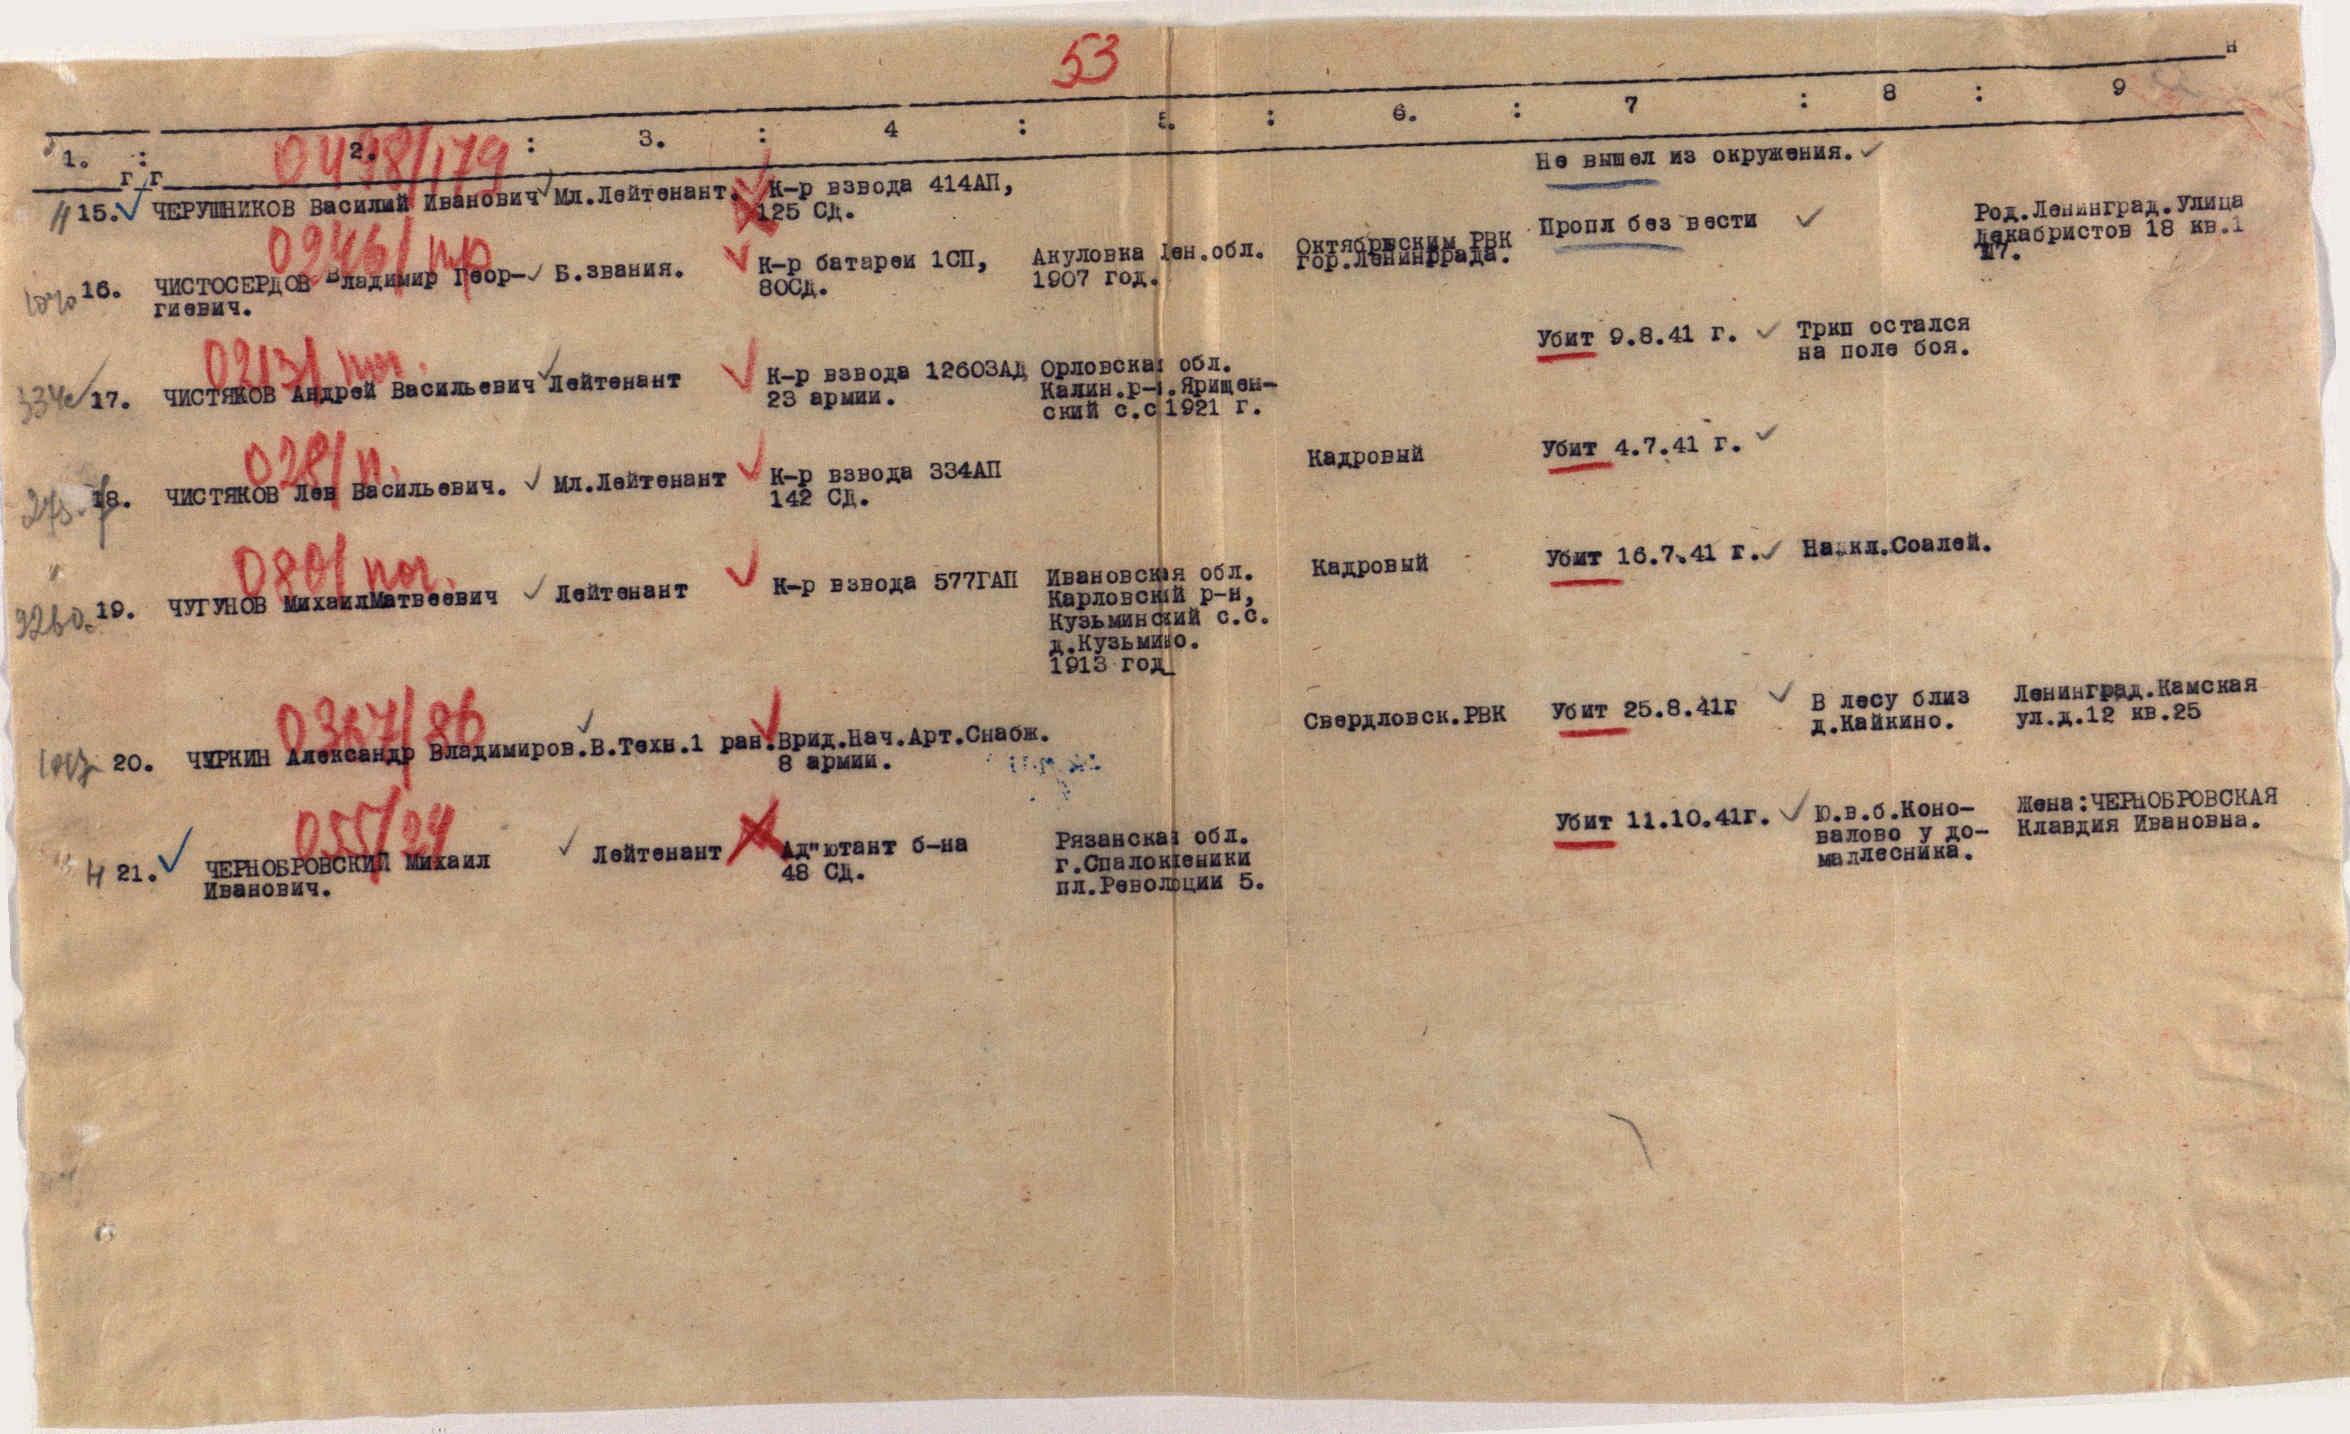 53
1. : 2. : 3. : 4 : 5. : 6. : 7 : 8 : 9
15. ЧЕРУШНИКОВ Василий Иванович Мл.Лейтенант. К-р взвода 414АП, Не вышел из окружения.
125 СД.
0498/179
16. ЧИСТОСЕРДОВ Владимир Геор- Б.звания. К-р батареи 1СП, Акуловка Лен.обл. Октябрьским РВК Пропл без вести Род.Ленинград.Улица
гиевич. 80СД. 1907 год. гор.Ленинграда. Декабристов 18 кв.1
17. ЧИСТЯКОВ Андрей Васильевич Лейтенант К-р взвода 1260ЗАД Орловская обл. Убит 9.8.41 г. Тркп остался
23 армии. Калин.р-н.Ярищен- на поле боя.
ский с.с 1921 г.
028/п.
18. ЧИСТЯКОВ Лев Васильевич. Мл.Лейтенант К-р взвода 334АП Кадровый Убит 4.7.41 г.
142 СД.
080/
19. ЧУГУНОВ МихаилМатвеевич Лейтенант К-р взвода 577ГАП Ивановская обл. Кадровый Убит 16.7.41 г. Соалей.
Карловский р-н,
Кузьминский с.с.
д.Кузьмино.
1913 год
0367/86
20. ЧУРКИН Александр Владимиров.В.Техн.1 ран.Врид.Нач.Арт.Снабж. Свердловск.РВК Убит 25.8.41г В лесу близ Ленинград.Камская
8 армии. д.Кайкино. ул.д.12 кв.25
055/24
21. ЧЕРНОБРОВСКИЙ Михаил Лейтенант Ад"ютант б-на Рязанская обл. Убит 11.10.41г. Ю.в.б.Коно- Жена:ЧЕРНОБРОВСКАЯ
Иванович. 48 СД. г.Спалокленики валово у до- Клавдия Ивановна.
пл.Революции 5. маллесника.